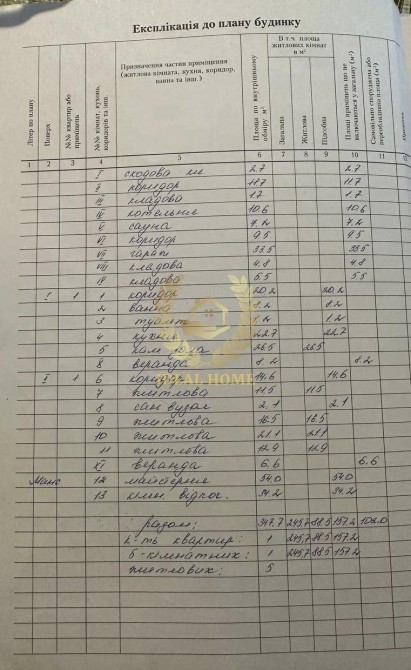 Експлікація до плану будинку
Літер по плану
Поверх
№№ квартир або приміщень
№№ кімнат, кухонь, коридорів та інш
Призначення частин приміщення (житлова кімната, кухня, коридор, ванна та інш.)
Площа по внутрішньому обміру м²
В т.ч. площа житлових кімнат в м²
Загальна
Житлова
Підсобна
Площі приміщень що не включаються у загальну (м²)
Самовільно споруджена або переобладнана площа (м²)
1 2 3 4 5 6 7 8 9 10 11
I сходова 2.7 2.7
II коридор 11.7 11.7
III кладова 1.7 1.7
IV котельня 10.6 10.6
V сауна 7.2 7.2
VI коридор 9.5 9.5
VII гараж 33.5 33.5
VIII кладова 4.8 4.8
IX кладова 5.5 5.5
I 1 1 коридор 20.2 20.2
2 ванна 8.2 8.2
3 туалет 1.2 1.2
4 кухня 22.7 22.7
5 26.5 26.5
8 веранда 8.2 8.2
II 1 6 коридор 14.6 14.6
7 житлова 11.5 11.5
8 сан вузол 2.1 2.1
9 житлова 16.5 16.5
10 житлова 21.1 21.1
11 житлова 12.9 12.9
XI веранда 6.6 6.6
Манс 12 майстерня 54.0 54.0
13 кімн. відпоч. 34.2 34.2
разом: 347.7 245.7 88.5 157.2 102.0
к-ть квартир: 1 245.7 88.5 157.2
5-кімнатних: 1 245.7 88.5 157.2
житлових: 5
REAL HOME